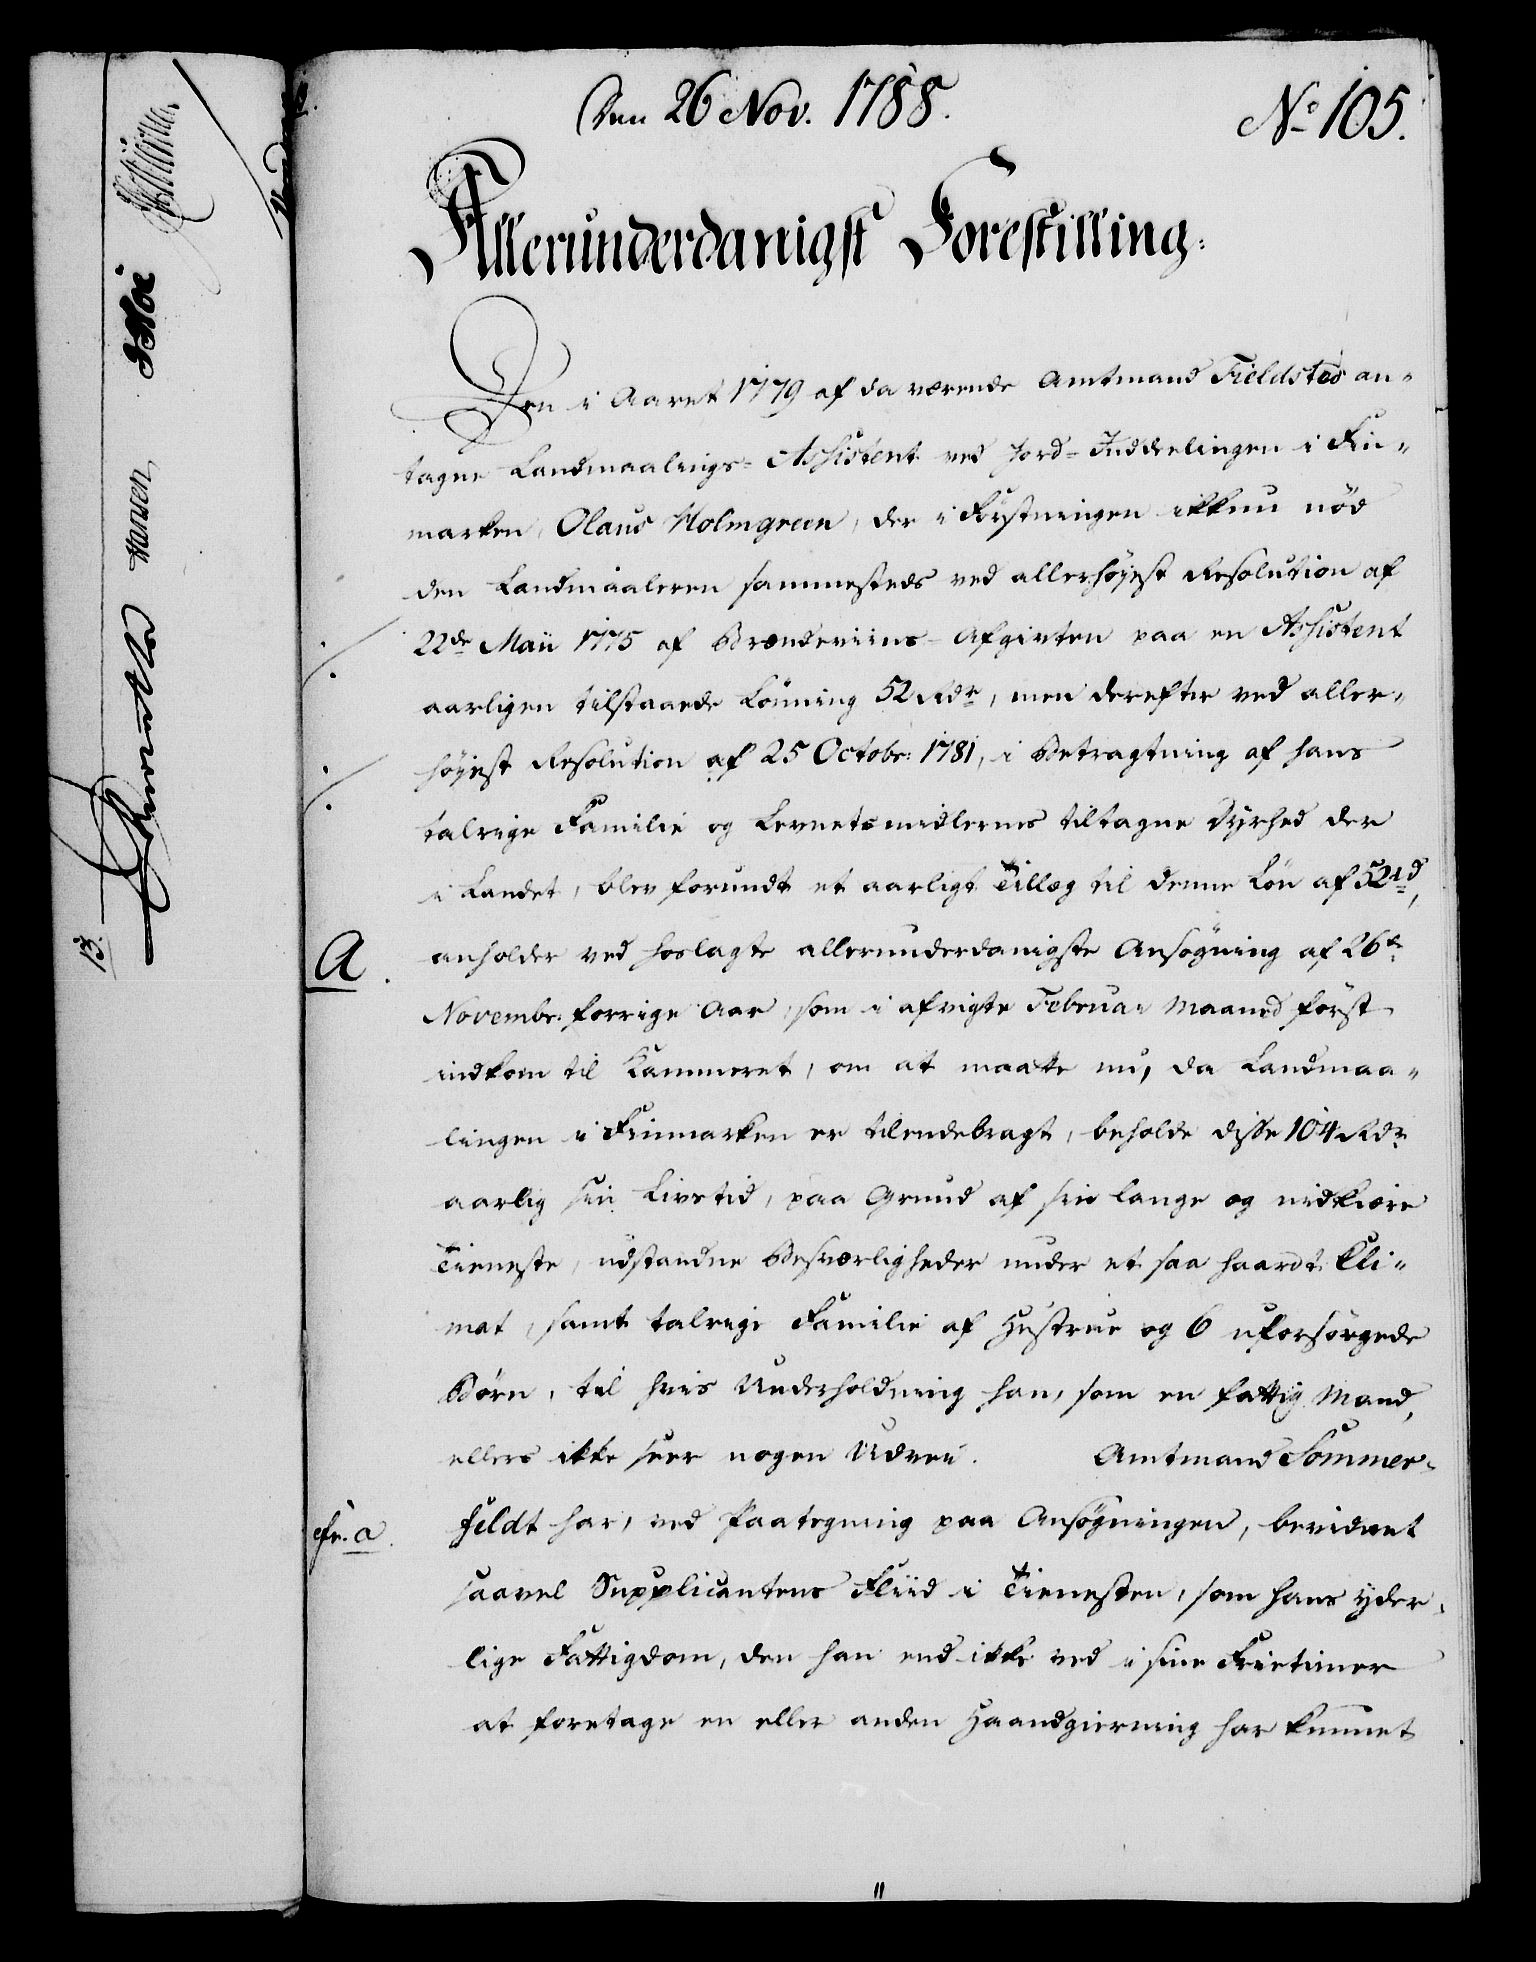 Den 26 Nov. 1788.
No 105.
Allerunderdanigst Forestilling:
Den i Aaret 1779 af da værende Amtmand Fieldsted an-
tagne Landmaalings-Assistent ved Jord-Inddelingen i Fin-
marken, Olaus Holmgreen, der i Førstningen ikkun nöd
den Landmaaleren sammesteds ved allerhöyest Resolution af
22de Maii 1775 af Brændeviins-Afgivten paa en Assistent
aarligen tilstaaede Lönning 52 Rdr, men derefter ved aller-
höyest Resolution af 25 Octobr: 1781, i Betragtning af hans
talrige Familie og Levnetsmidlernes tiltagne Dyrhed der
i Landet, blev forundt et aarligt Tillæg til denne Lön af 52 rd,
A.
anholder ved hoslagte allerunderdanigste Ansögning af 26de
Novembr: forrige Aar, som i afvigte Februar Maaned först
indkom til Kammeret, om at maatte nu, da Landmaa-
lingen i Finmarken er tilendebragt, beholde disse 104 Rdr
aarlig sin Livstid, paa Grund af sin lange og nidkiere
Tieneste, udstandne Besværligheder under et saa haardt Cli-
mat, samt talrige Familie af Hustrue og 6 uforsörgede
Börn, til hvis Underholdning han, som en fattig Mand,
ellers ikke seer nogen Udvei. Amtmand Sommer-
cfr. a.
feldt har, ved Paategning paa Ansögningen, bevidnet
saavel Supplicantens Fliid i Tienesten, som hans yder-
lige Fattigdom, den han end ikke ved i sine Frietimer
at foretage en eller anden Haandgierning har kunnet
Hansen
13.